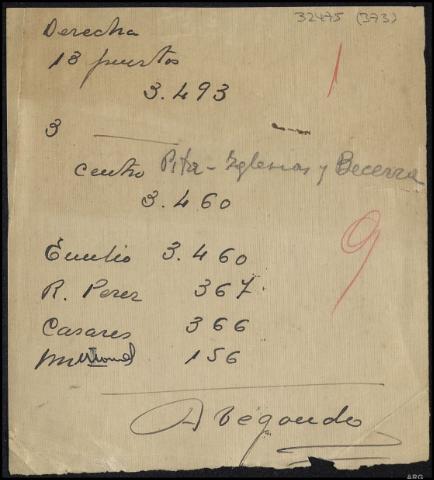 32475 (373)
Derecha
13 puestos
3.493
1
3
centro Pita - Yglesias y Becerra
3.460
9
Emilio 3.460
R. Perez 367
Casares 366
156
Abegondo
ARG